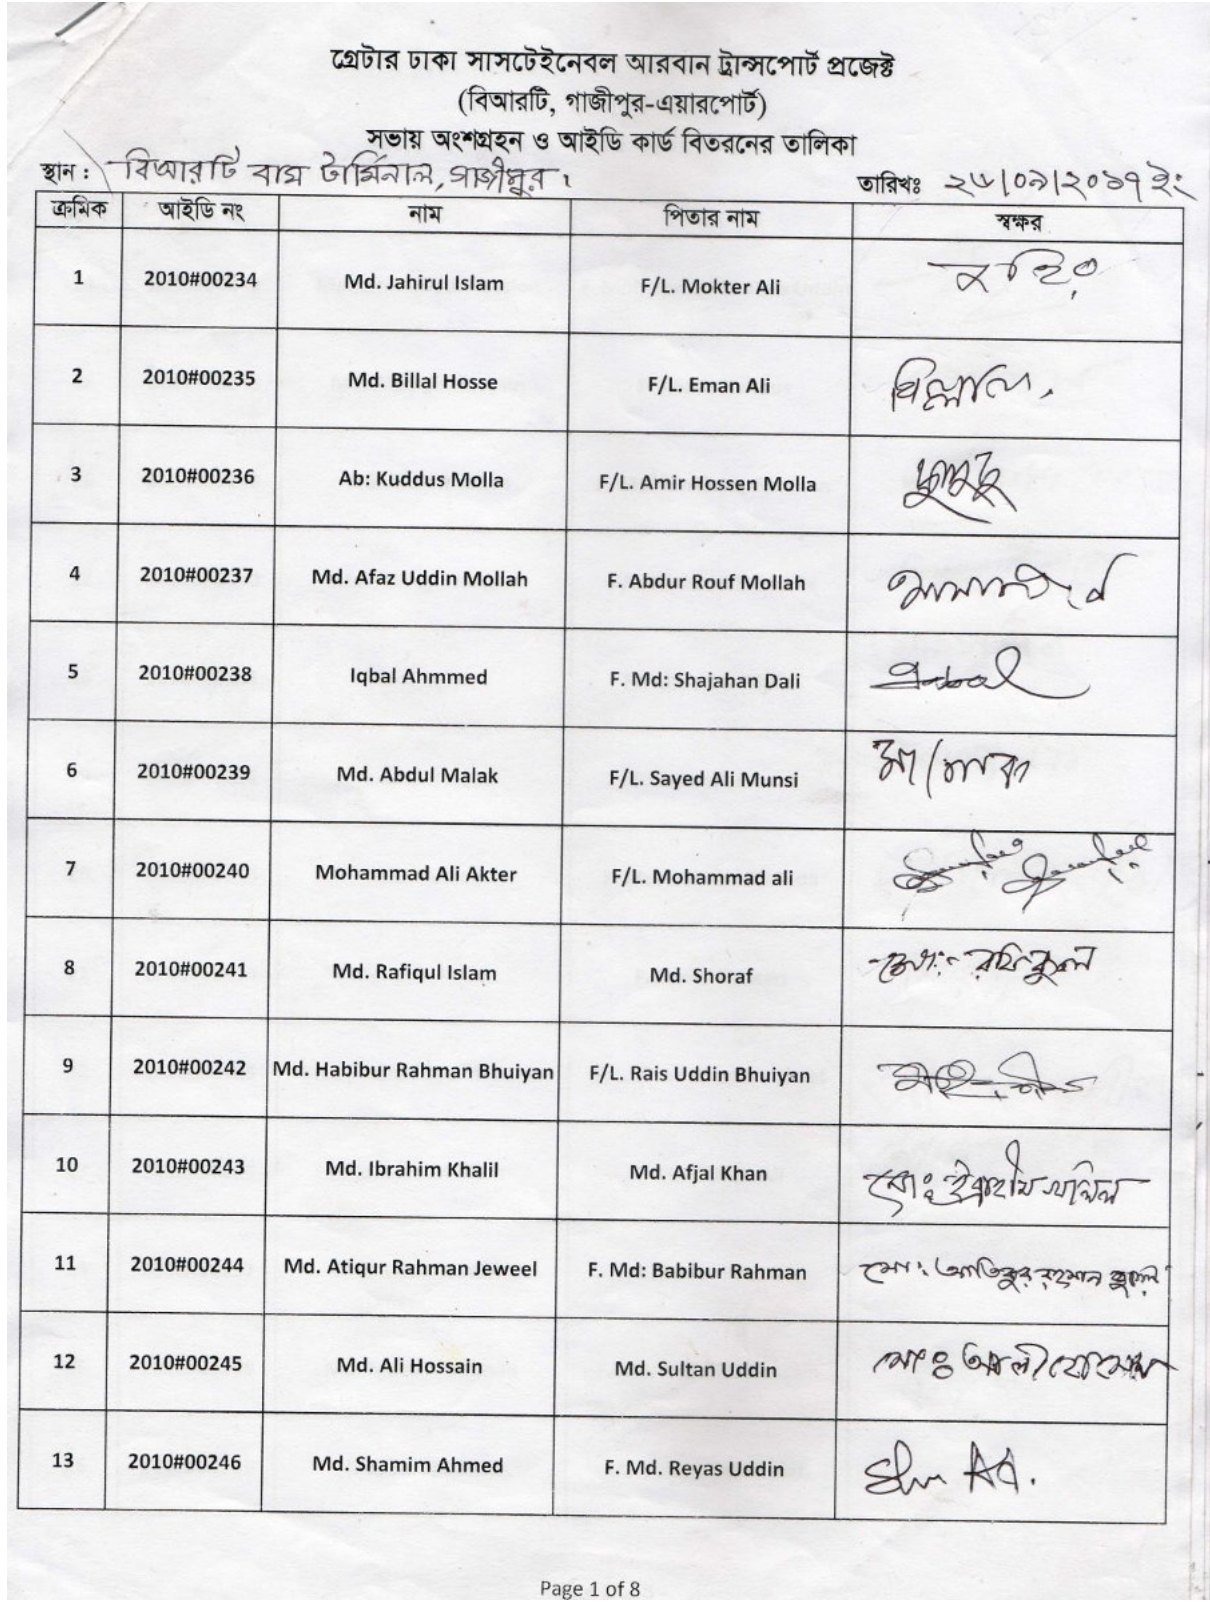 গ্রেটার ঢাকা সাসটেইনেবল আরবান ট্রান্সপোর্ট প্রজেক্ট
(বিআরটি, গাজীপুর-এয়ারপোর্ট)
সভায় অংশগ্রহন ও আইডি কার্ড বিতরনের তালিকা
স্থান : বিআরটি বাস টার্মিনাল, গাজীপুর। তারিখঃ ২৬/০৯/২০১৭ ইং
ক্রমিক আইডি নং নাম পিতার নাম স্বক্ষর
1 2010#00234 Md. Jahirul Islam F/L. Mokter Ali
2 2010#00235 Md. Billal Hosse F/L. Eman Ali বিল্লাল
3 2010#00236 Ab: Kuddus Molla F/L. Amir Hossen Molla
4 2010#00237 Md. Afaz Uddin Mollah F. Abdur Rouf Mollah
5 2010#00238 Iqbal Ahmmed F. Md: Shajahan Dali
6 2010#00239 Md. Abdul Malak F/L. Sayed Ali Munsi
7 2010#00240 Mohammad Ali Akter F/L. Mohammad ali
8 2010#00241 Md. Rafiqul Islam Md. Shoraf মোঃ রফিকুল
9 2010#00242 Md. Habibur Rahman Bhuiyan F/L. Rais Uddin Bhuiyan
10 2010#00243 Md. Ibrahim Khalil Md. Afjal Khan মোঃ ইব্রাহীম খলিল
11 2010#00244 Md. Atiqur Rahman Jeweel F. Md: Babibur Rahman মোঃ আতিকুর রহমান জুয়েল
12 2010#00245 Md. Ali Hossain Md. Sultan Uddin মোঃ আলী হোসেন
13 2010#00246 Md. Shamim Ahmed F. Md. Reyas Uddin
Page 1 of 8